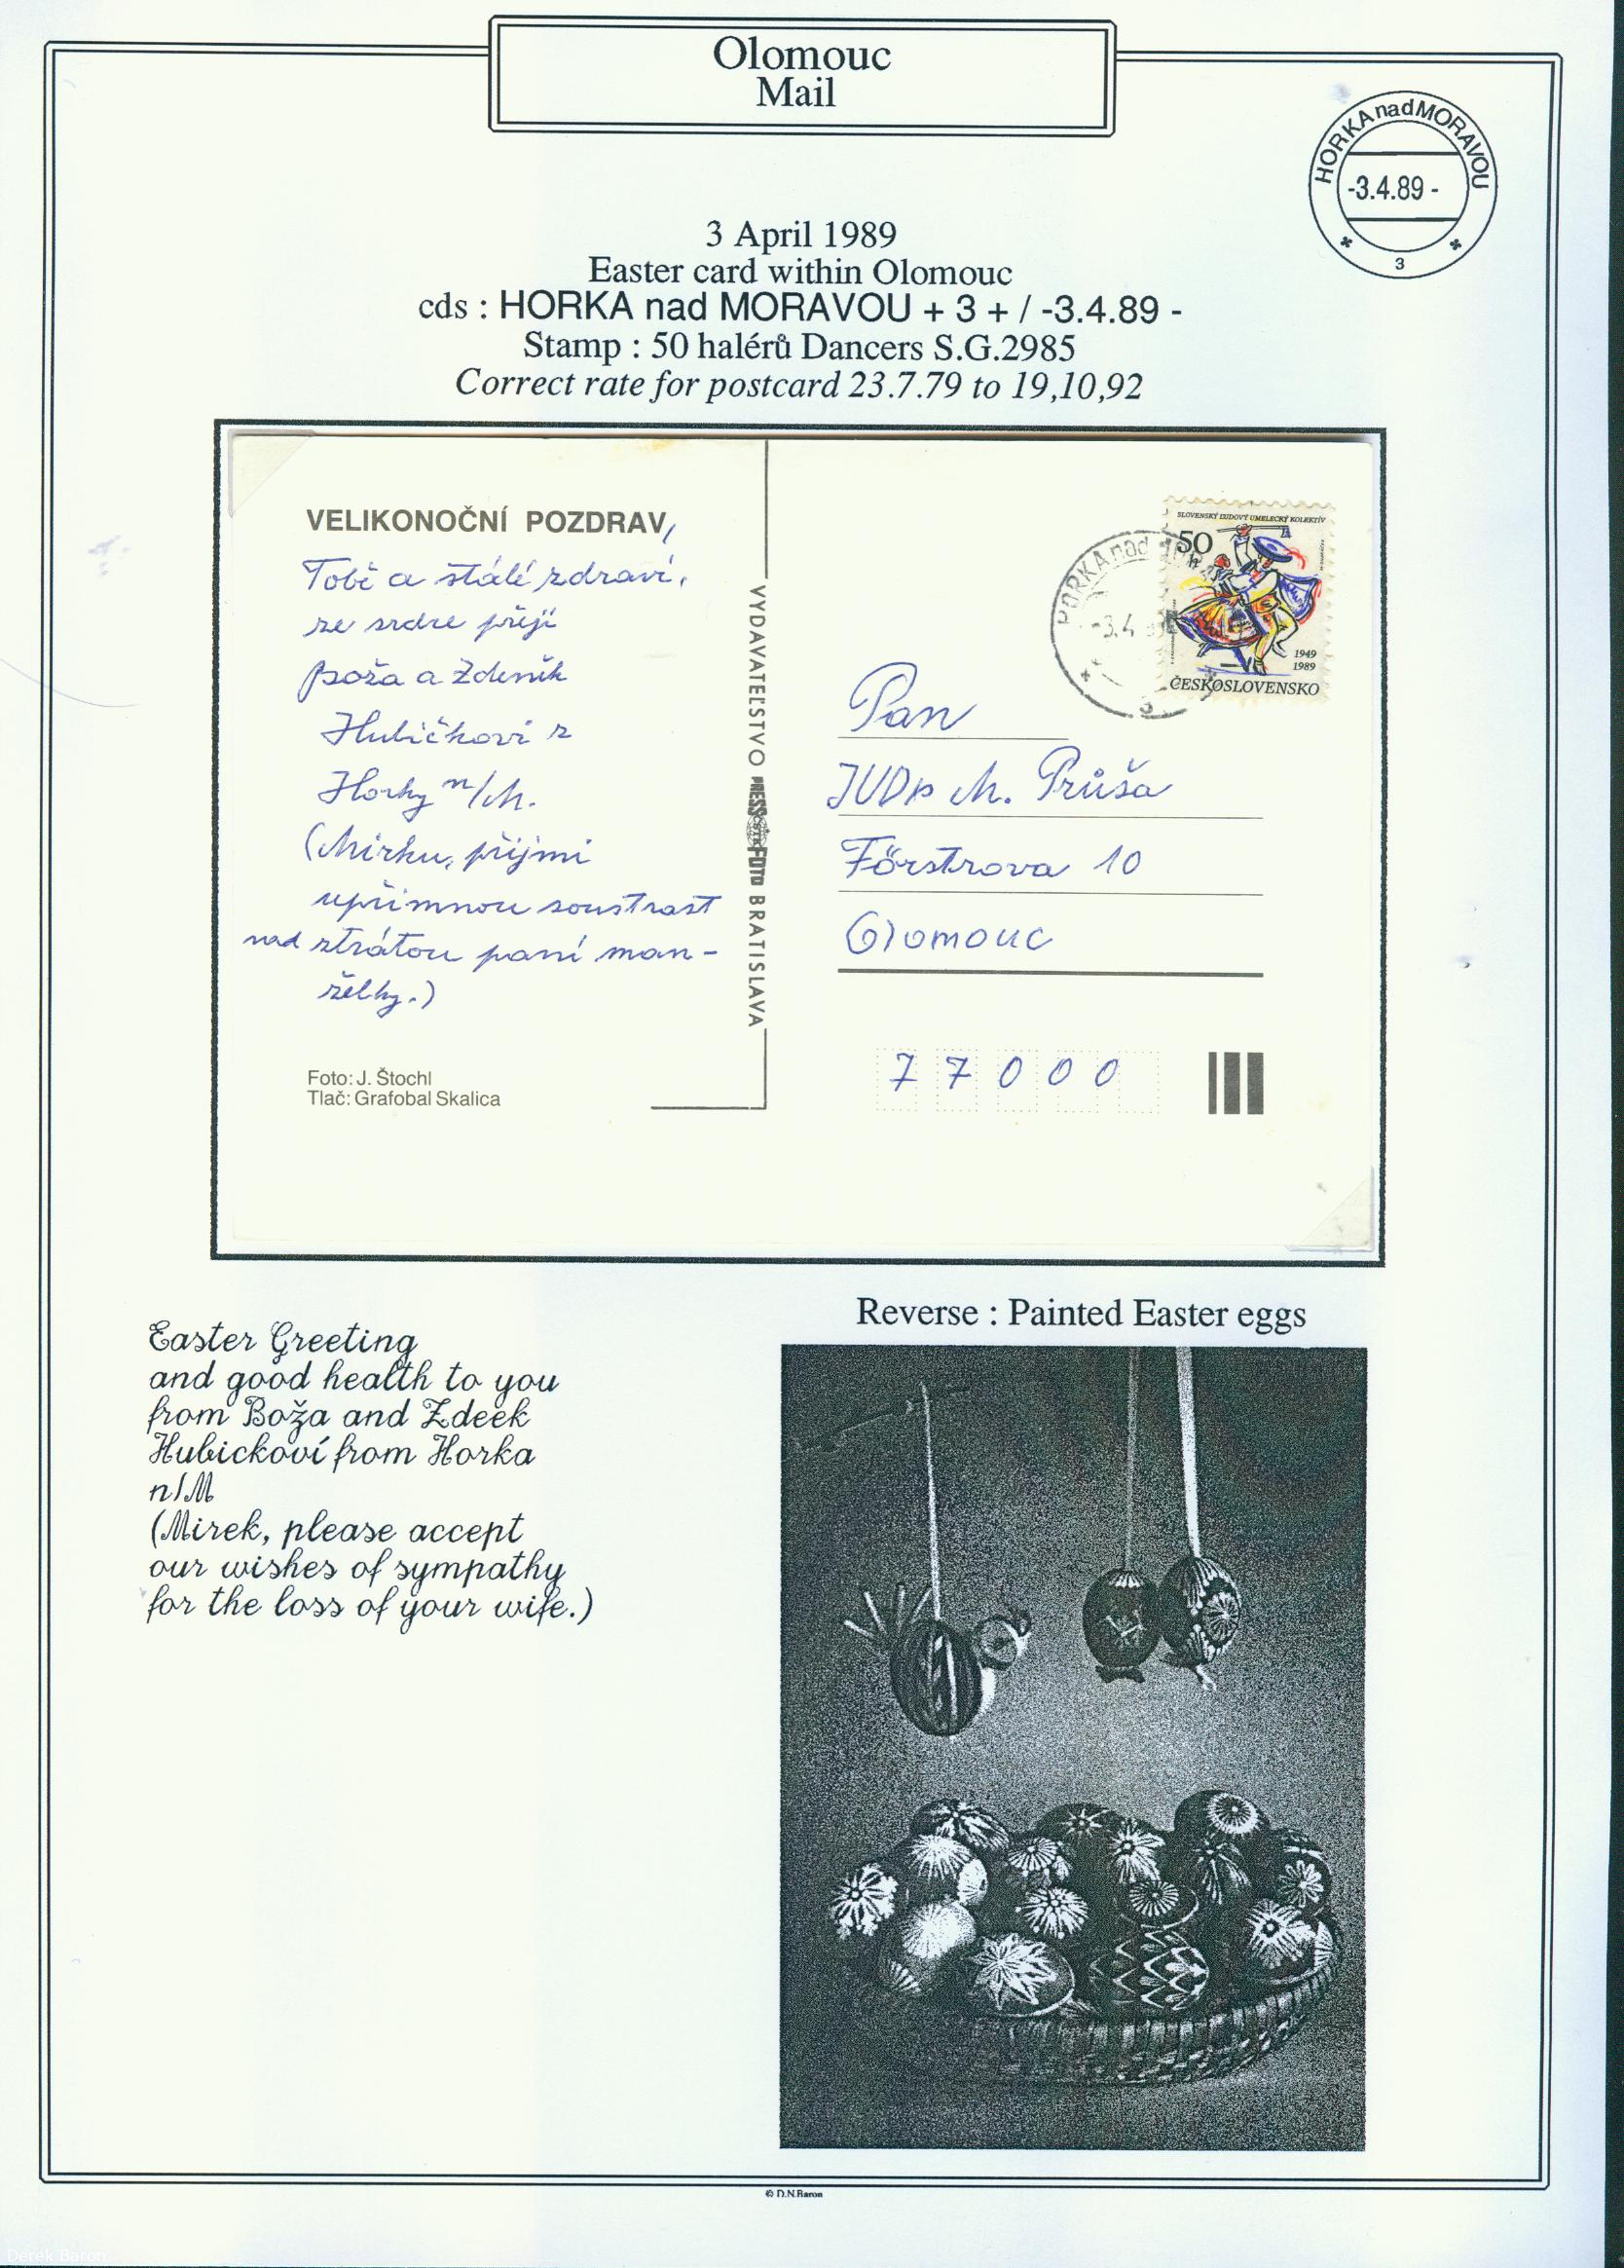 Olomouc
Mail
HORKA nad MORAVOU
-3.4.89 -
3
3 April 1989
Easter card within Olomouc
cds : HORKA nad MORAVOU + 3 + / -3.4.89 -
Stamp : 50 halérů Dancers S.G.2985
Correct rate for postcard 23.7.79 to 19,10,92
VELIKONOČNÍ POZDRAV,
Tobě a stálé zdraví,
ze srdce přejí
Boža a Zdeněk
Hubičkovi z
Horky n/M.
(Mirku, přijmi
upřímnou soustrast
nad ztrátou paní man-
želky.)
Foto: J. Štochl
Tlač: Grafobal Skalica
VYDAVATEĽSTVO PRESSFOTO BRATISLAVA
HORKA nad
-3.4
3
SLOVENSKÝ ĽUDOVÝ UMELECKÝ KOLEKTÍV
50
h
1949
1989
ČESKOSLOVENSKO
Pan
JUDr M. Průša
Förstrova 10
Olomouc
77000
Easter Greeting
and good health to you
from Boža and Zdeek
Hubickoví from Horka
n/M
(Mirek, please accept
our wishes of sympathy
for the loss of your wife.)
Reverse : Painted Easter eggs
© D.N.Baron
Derek Baron